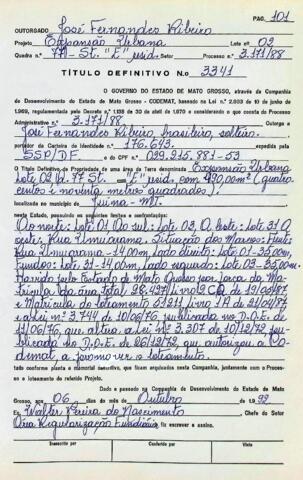 PAG. 101
OUTORGADO José Fernandes Ribeiro
Projeto Expansão Urbana Lote nº 02
Quadra nº 77-St. "E" resid. Setor Processo nº 3.171/88
TÍTULO DEFINITIVO N.o 3341
O GOVERNO DO ESTADO DE MATO GROSSO, através da Companhia
de Desenvolvimento do Estado de Mato Grosso - CODEMAT, baseado na Lei n.º 2.803 de 10 de junho de
1.969, regulamentada pelo Decreto n.º 1.138 de 30 de abril de 1.970 e considerando o que consta do Processo
Administrativo n.º 3.171/88
José Fernandes Ribeiro, brasileiro, solteiro,
portador da Carteira de Identidade n.º 176.643.
SSP/DF e do CPF n.º 039.215.881-53
O Título Definitivo de Propriedade de uma área de Terra denominada Expansão Urbana
Lote 02 Q. 77 St. "E" resid. com 490,00m² (quatro
centos e noventa metros quadrados)
localizada no município de Juína-MT.
neste Estado, possuindo os seguintes limites e confrontações:
Ao norte: Lote 01. Ao sul: Lote 03. A leste: Lote 31. A
oeste: Rua Umuarama. Situação dos Marcos: Frente
Rua Umuarama-14,00m, lado direito: Lote 01-35,00m,
Fundos: Lote 31-14,00m, lado esquerdo: Lote 03-35,00m.
Havido pelo Estado de Mato Grosso por força da Ma-
trícula da área Total: 28.497, livro 2 CQ, de 19/03/87
e Matrícula do loteamento 51211, livro 1A de 21/04/87
e a lei nº 3.744 de 10/06/76 publicada no D.O.E. de
11/06/76, que altera a lei nº 3.307 de 10/12/72 pu-
blicada no D.O.E. de 26/12/72, que autorizou a Co-
demat, a promover o loteamento.
tudo conforme planta e memorial descritivo, que ficam arquivados nesta Companhia, juntamente com o Proces-
so e loteamento do referido Projeto.
Dado e passado na Companhia de Desenvolvimento do Estado de Mato
Grosso, aos 06 dias do mês de Outubro de 1.992.
Eu Walter Pereira do Nascimento Chefe do Setor
Área Regularização Fundiária fiz escrever e assino.
Transcrito por
Conferido por
Visto